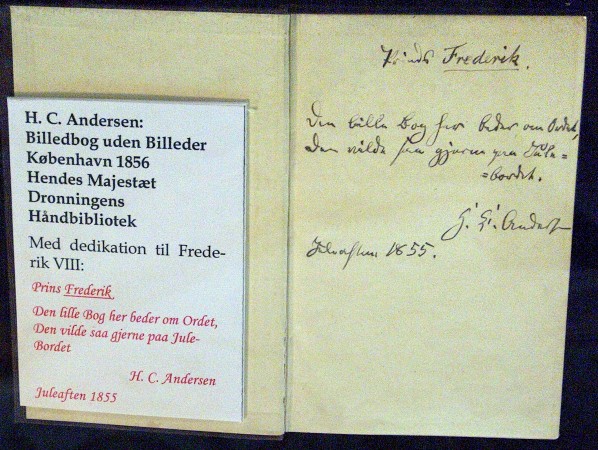 H. C. Andersen:
Billedbog uden Billeder
København 1856
Hendes Majestæt
Dronningens
Håndbibliotek
Med dedikation til Frede-
rik VIII:
Prins Frederik
Den lille Bog her beder om Ordet,
Den vilde saa gjerne paa Jule-
Bordet
H. C. Andersen
Juleaften 1855
Prinds Frederik.
Den lille Bog her beder om Ordet,
Den vilde saa gjerne paa Jule=
=bordet.
H. C. Andersen
Juleaften 1855.